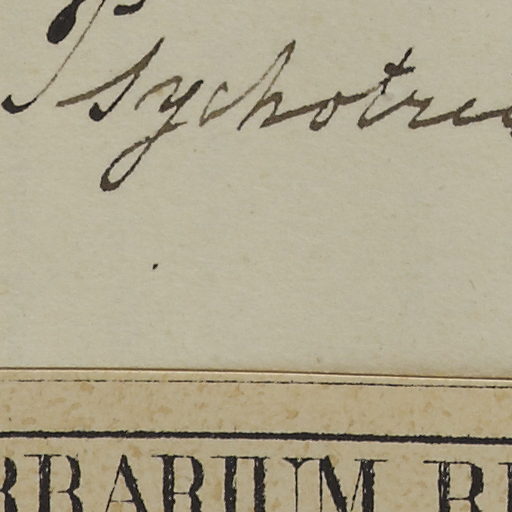 Psychotria
RBARIUM B